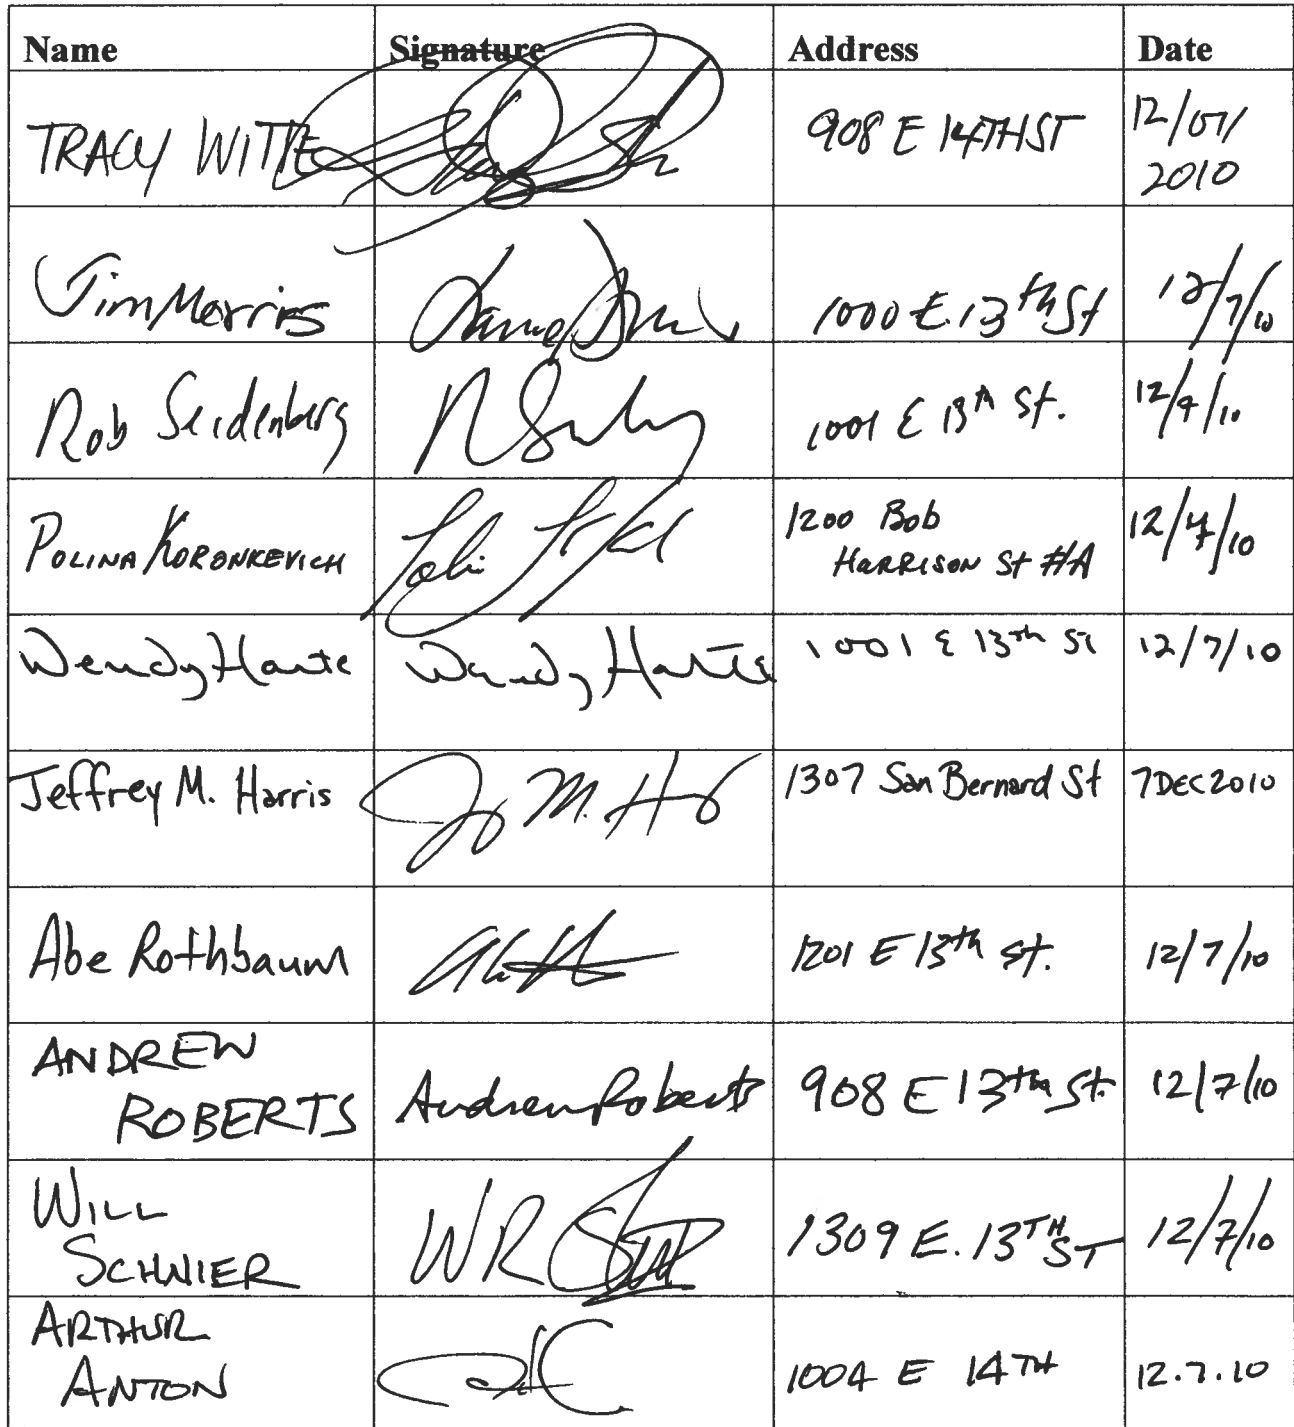 Name Signature Address Date
TRACY WITTE 908 E 14TH ST 12/07/
2010
Jim Morris 1000 E. 13th St 12/7/10
Rob Seidenberg 1001 E 13th St. 12/7/10
POLINA KORONKEVICH 1200 Bob
HARRISON St #A 12/7/10
Wendy Harte Wendy Harte 1001 E 13th St 12/7/10
Jeffrey M. Harris 1307 San Bernard St 7DEC2010
Abe Rothbaum 1201 E 13th St. 12/7/10
ANDREW
ROBERTS Andrew Roberts 908 E 13th St. 12/7/10
WILL
SCHNIER 1309 E. 13TH ST 12/7/10
ARTHUR
ANTON 1004 E 14TH 12.7.10